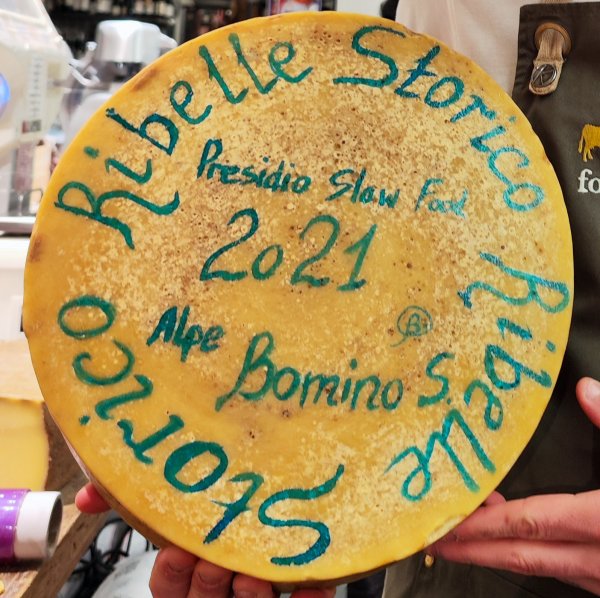 Ribelle Storico
Ribelle
Storico
Presidio Slow Food
2021
B
Alpe Bomino S.
fo